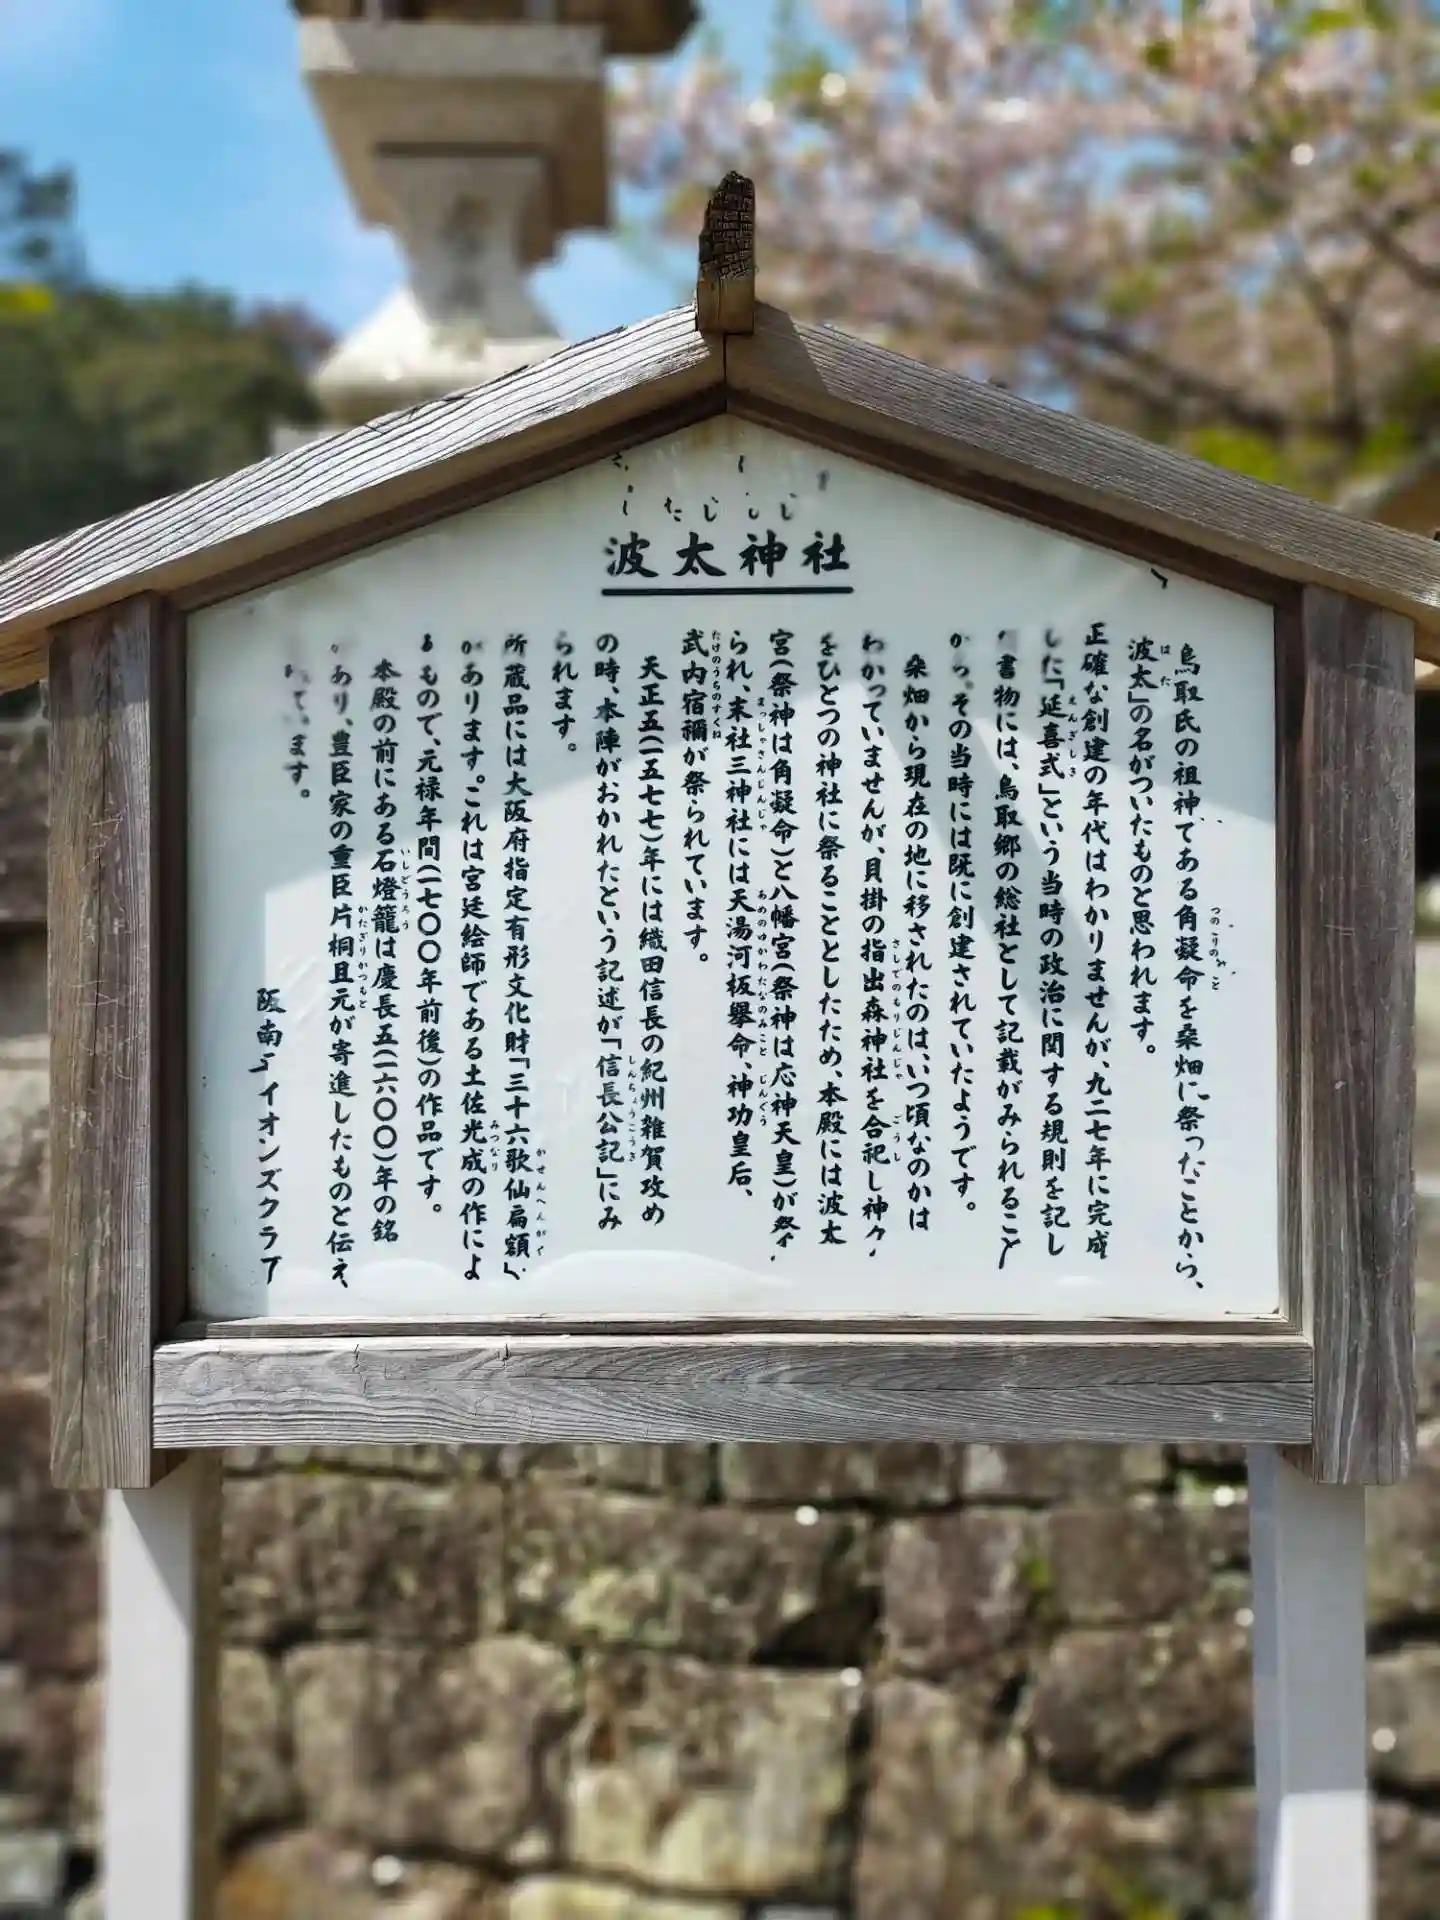 波太神社
鳥取氏の祖神である角凝命を桑畑に祭ったことから、
波太」の名がついたものと思われます。
正確な創建の年代はわかりませんが、九二七年に完成
した「延喜式」という当時の政治に関する規則を記し
書物には、鳥取郷の総社として記載がみられること
から。その当時には既に創建されていたようです。
桑畑から現在の地に移されたのは、いつ頃なのかは
わかっていませんが、貝掛の指出森神社を合祀し神々
をひとつの神社に祭ることとしたため、本殿には波太
宮(祭神は角凝命)と八幡宮(祭神は応神天皇)が祭
られ、末社三神社には天湯河板擧命、神功皇后、
武内宿禰が祭られています。
天正五(一五七七)年には織田信長の紀州雑賀攻め
の時、本陣がおかれたという記述が「信長公記」にみ
られます。
所蔵品には大阪府指定有形文化財「三十六歌仙扁額」
があります。これは宮廷絵師である土佐光成の作によ
るもので、元禄年間(一七〇〇年前後)の作品です。
本殿の前にある石燈籠は慶長五(一六〇〇)年の銘
があり、豊臣家の重臣片桐且元が寄進したものと伝え
ます。
阪南ライオンズクラブ